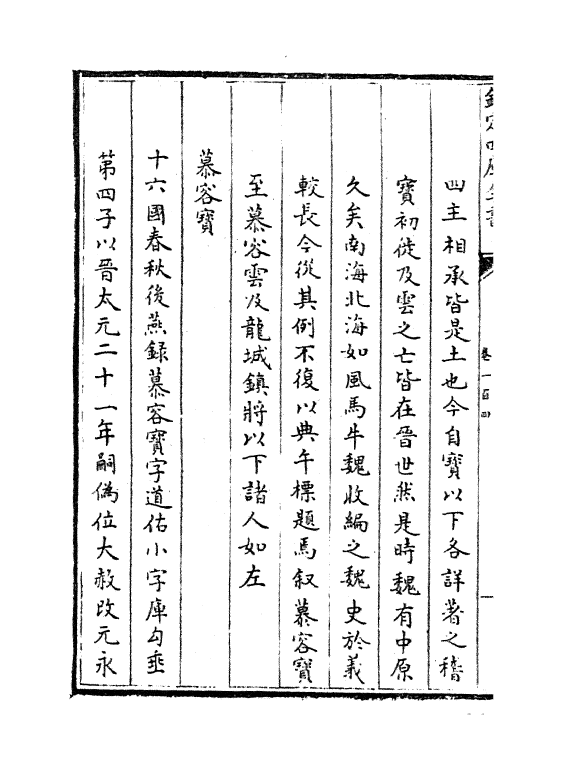 欽定四庫全書
卷一百四
四主相承皆是土也今自寶以下各詳著之稽
寶初徙及雲之亡皆在晉世然是時魏有中原
久矣南海北海如風馬牛魏收編之魏史於義
較長今從其例不復以典午標題焉叙慕容寶
至慕容雲及龍城鎮將以下諸人如左
慕容寶
十六國春秋後燕錄慕容寶字道佑小字庫勾垂
第四子以晉太元二十一年嗣僞位大赦改元永